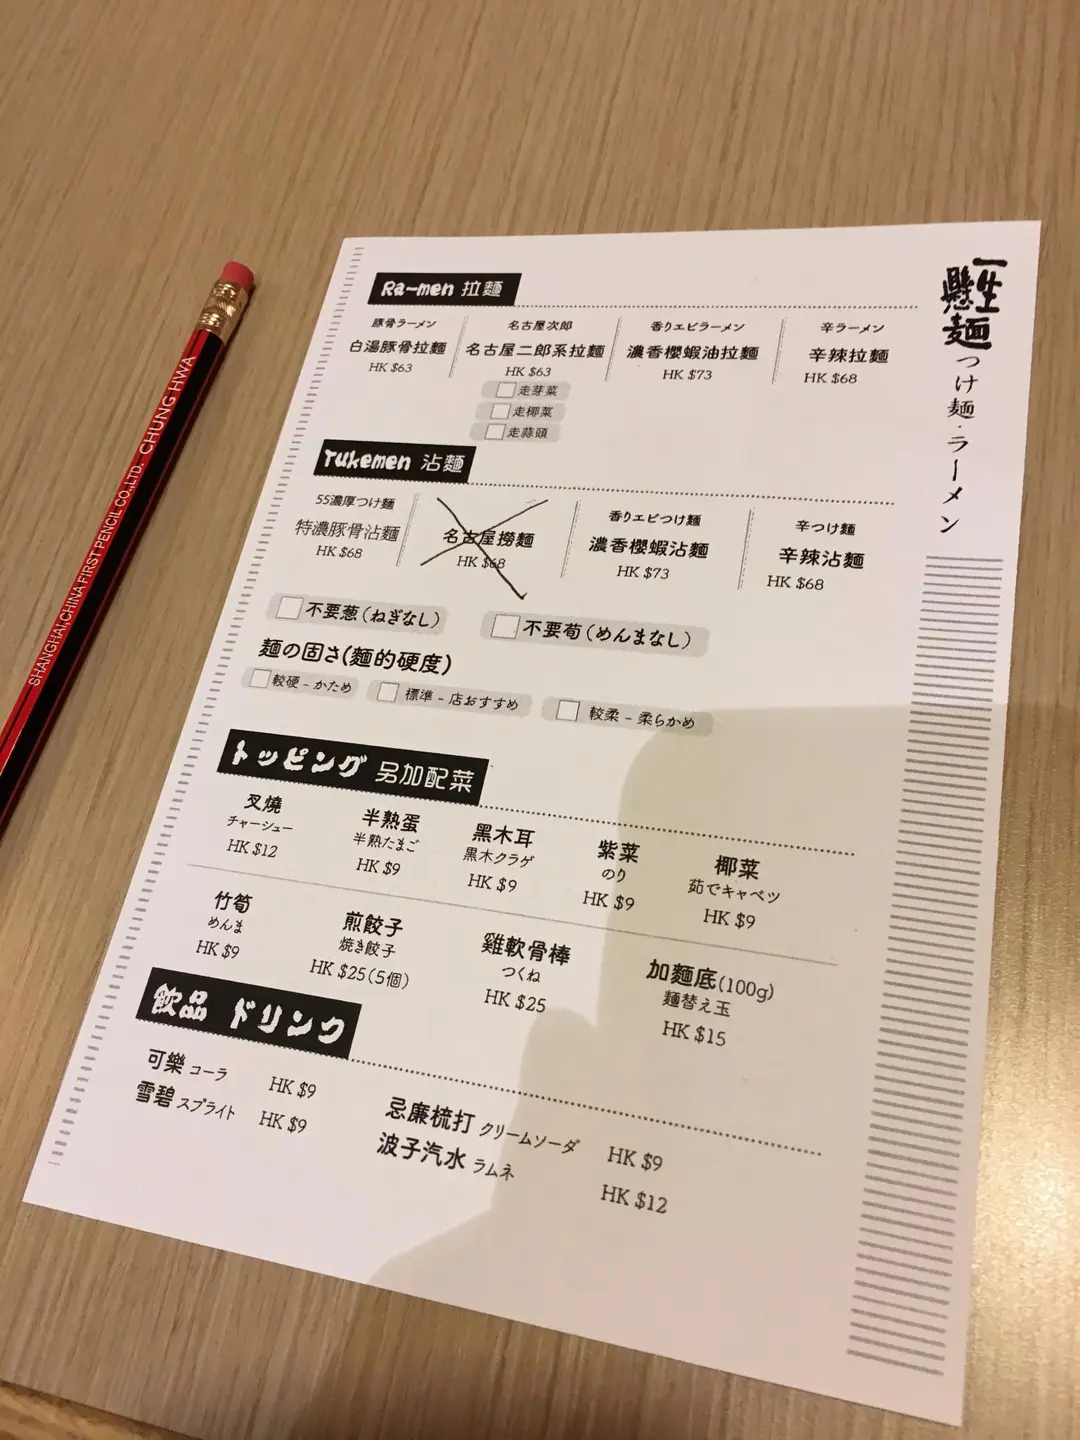 一生懸麺
つけ麺・ラーメン
Ra-men 拉麵
豚骨ラーメン
白湯豚骨拉麵
HK $63
名古屋次郎
名古屋二郎系拉麵
HK $63
走芽菜
走椰菜
走蒜頭
香りエビラーメン
濃香櫻蝦油拉麵
HK $73
辛ラーメン
辛辣拉麵
HK $68
Tukemen 沾麵
55濃厚つけ麵
特濃豚骨沾麵
HK $68
名古屋撈麵
HK $68
香りエビつけ麵
濃香櫻蝦沾麵
HK $73
辛つけ麵
辛辣沾麵
HK $68
不要葱(ねぎなし)
不要荀(めんまなし)
麵の固さ(麵的硬度)
較硬 - かため
標準 - 店おすすめ
較柔 - 柔らかめ
トッピング 另加配菜
叉燒
チャーシュー
HK $12
半熟蛋
半熟たまご
HK $9
黑木耳
黒木クラゲ
HK $9
紫菜
のり
HK $9
椰菜
茹でキャベツ
HK $9
竹筍
めんま
HK $9
煎餃子
焼き餃子
HK $25(5個)
雞軟骨棒
つくね
HK $25
加麵底(100g)
麵替え玉
HK $15
飲品 ドリンク
可樂 コーラ HK $9
雪碧 スプライト HK $9
忌廉梳打 クリームソーダ HK $9
波子汽水 ラムネ HK $12
SHANGHAI,CHINA FIRST PENCIL CO.,LTD. CHUNG HWA